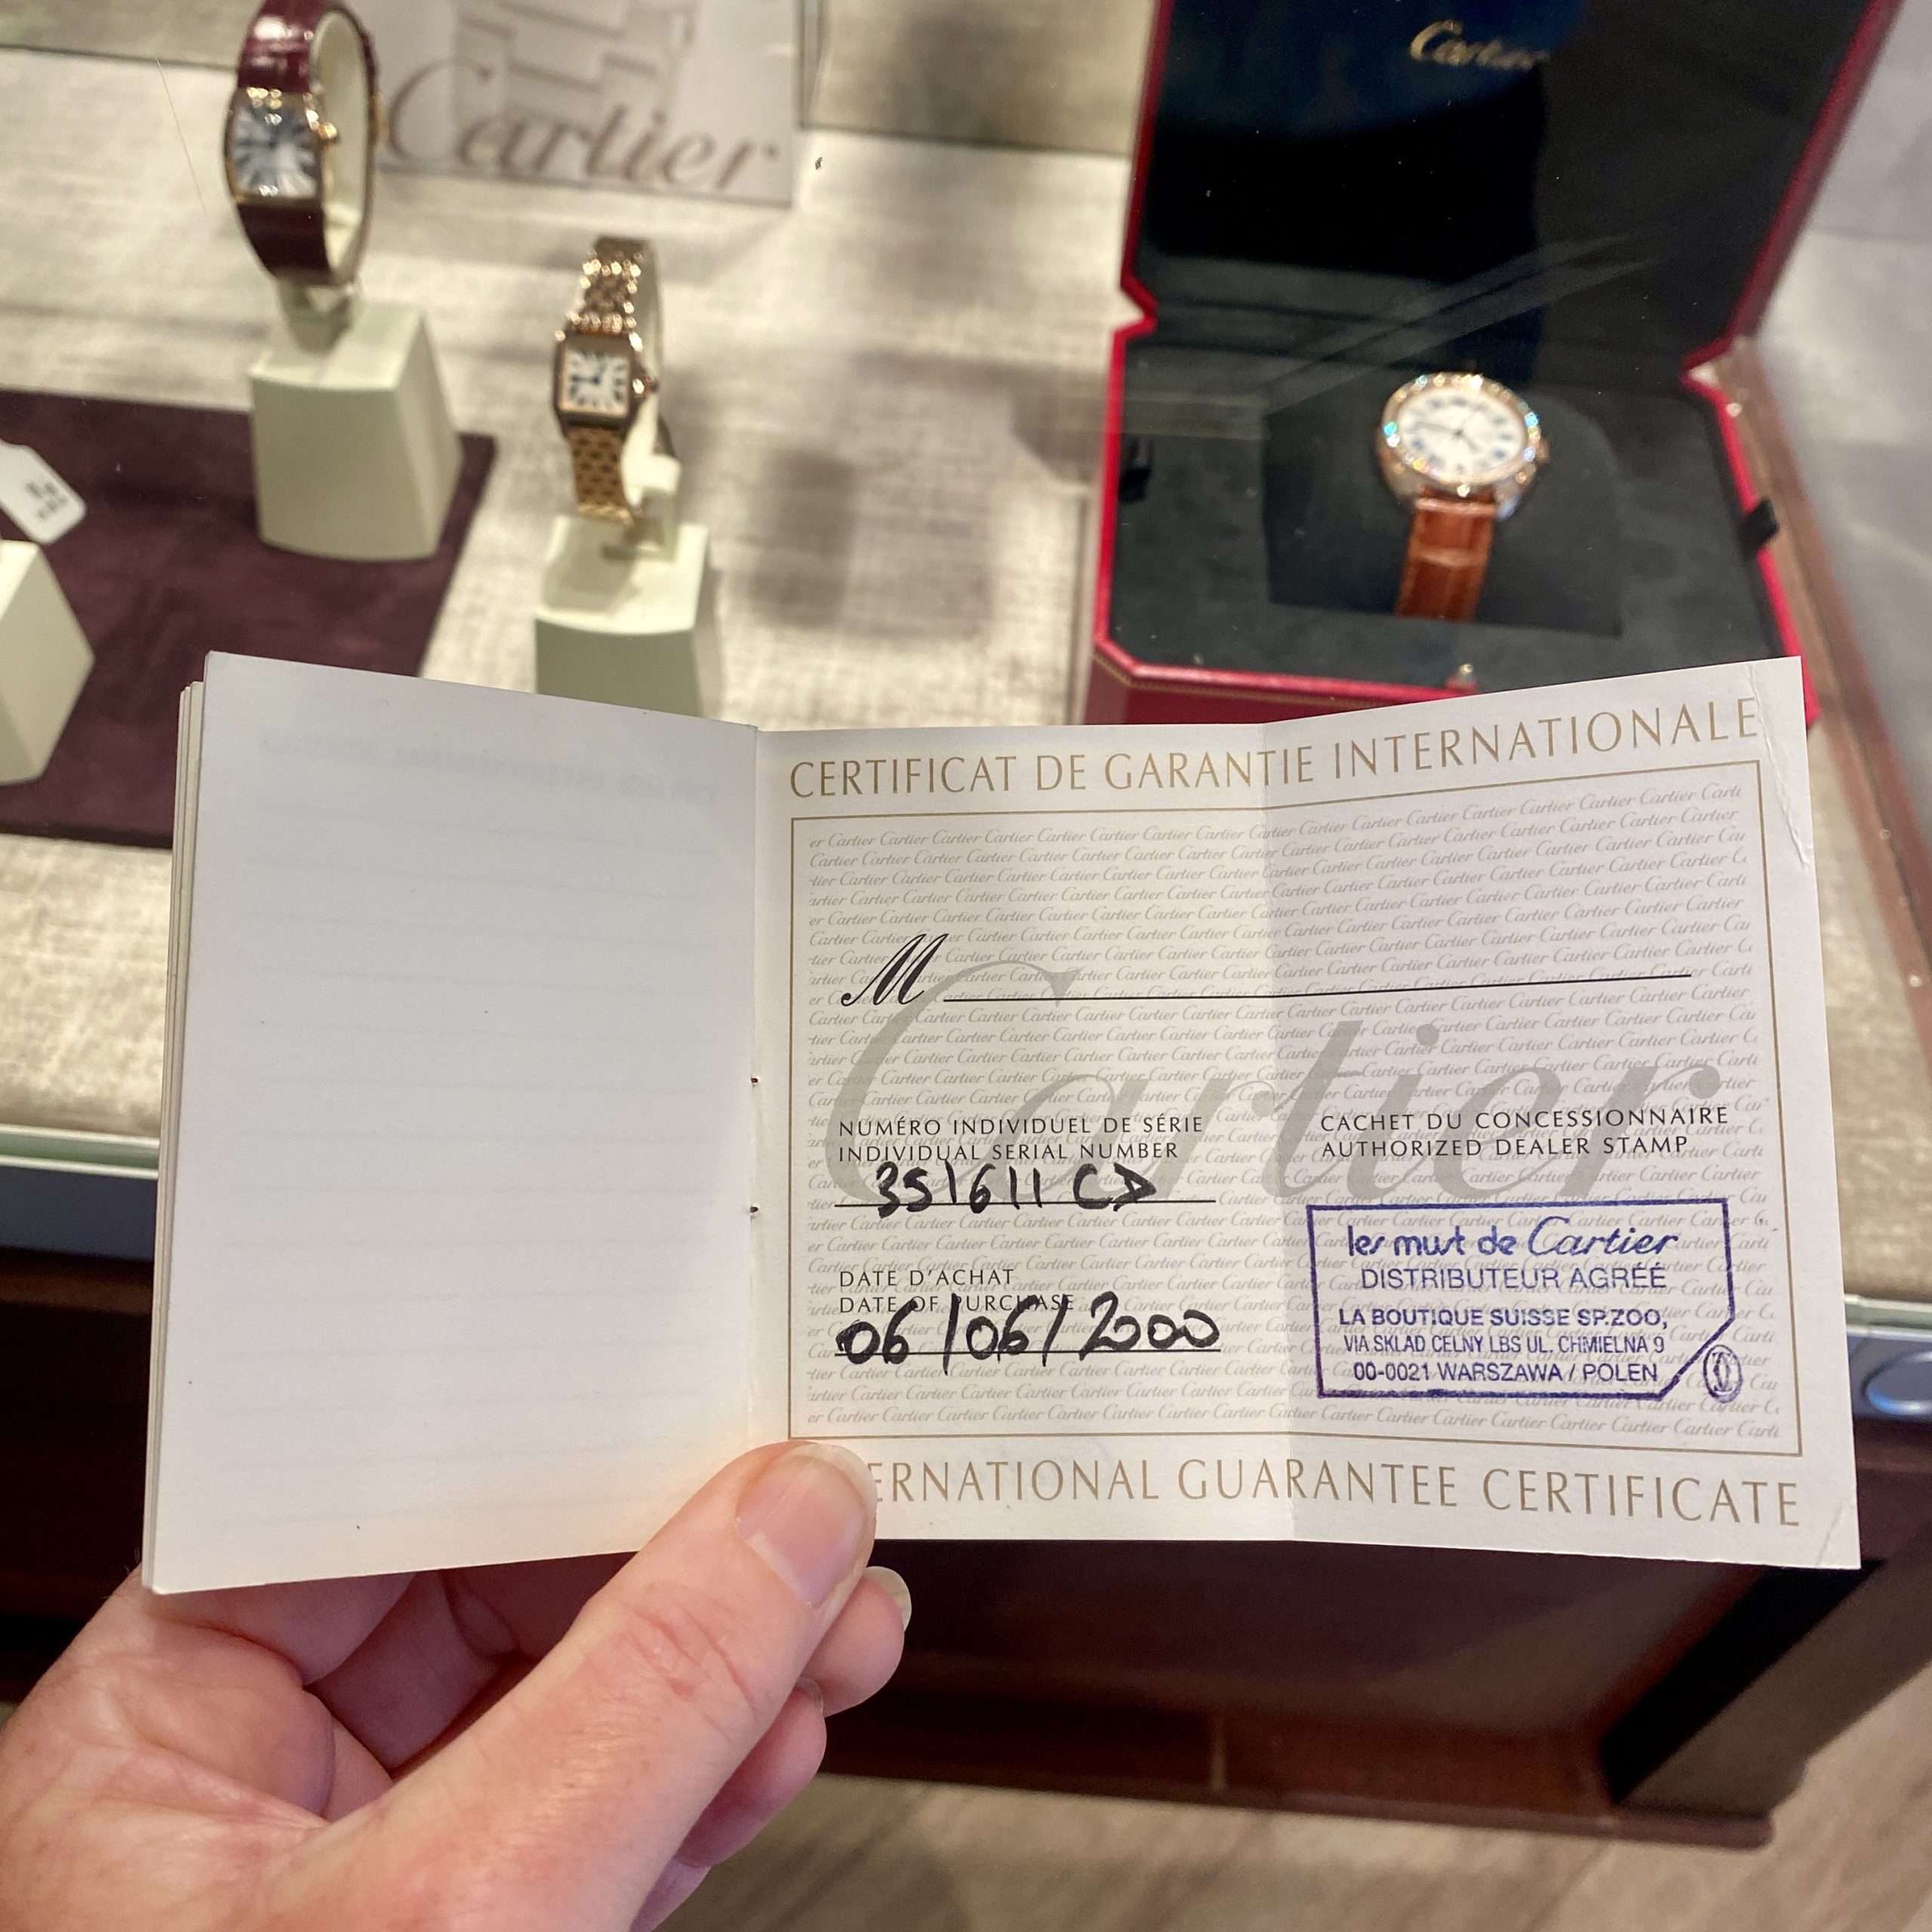 Cartier
Cartier
CERTIFICAT DE GARANTIE INTERNATIONALE
M
Cartier
NUMÉRO INDIVIDUEL DE SÉRIE
INDIVIDUAL SERIAL NUMBER
351611 CD
DATE D'ACHAT
DATE OF PURCHASE
06/06/2000
CACHET DU CONCESSIONNAIRE
AUTHORIZED DEALER STAMP
les must de Cartier
DISTRIBUTEUR AGRÉÉ
LA BOUTIQUE SUISSE SP.ZOO,
VIA SKLAD CELNY LBS UL. CHMIELNA 9
00-0021 WARSZAWA / POLEN
ERNATIONAL GUARANTEE CERTIFICATE